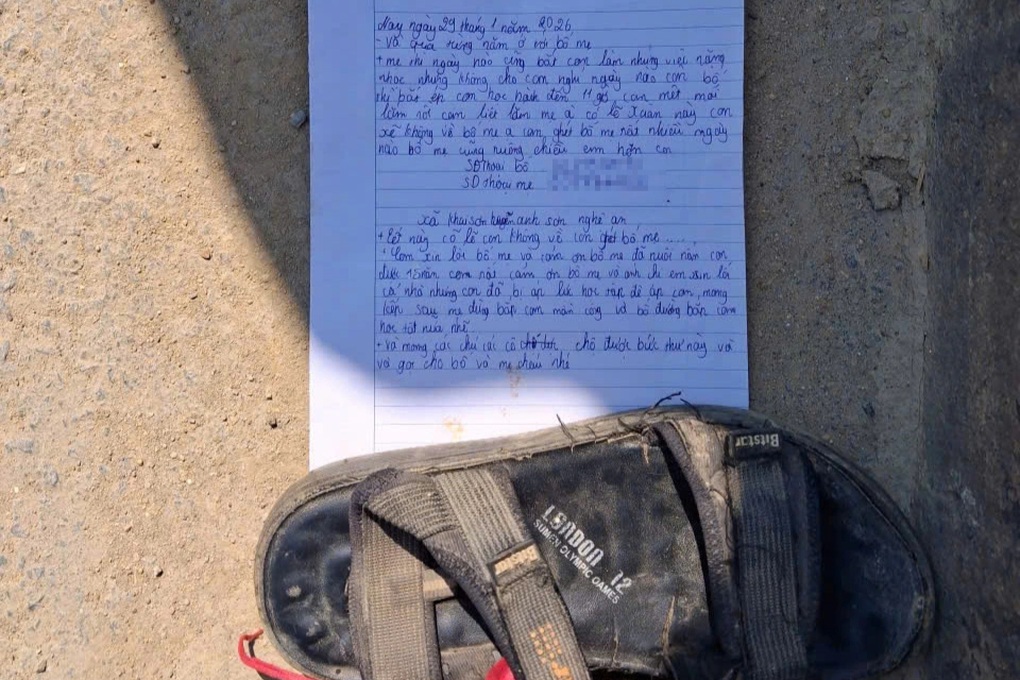 Nay ngày 29 tháng 1 năm 2026
- Và qua từng năm ở với bố mẹ
+ mẹ thì ngày nào cũng bắt con làm những việc nặng
nhọc nhưng không cho con nghỉ ngày nào con bố
thì bắt ép con học hành đến 11 giờ con mệt mỏi
lắm rồi con liệt lắm mẹ ạ có lẽ Xuân này con
xẽ không về bố mẹ ạ con ghét bố mẹ rất nhiều ngày
nào bố mẹ cũng nuông chiều em hơn con
SĐThoại bố
SĐ Thoại mẹ
xã khai sơn huyện anh sơn nghệ an
+ tết này có lẽ con không về con ghét bố mẹ .....
+ Con xin lỗi bố mẹ và cảm ơn bố mẹ đã nuôi nấng con
được 15 năm con rất cảm ơn bố mẹ và anh chị em xin lỗi
cả nhà nhưng con đã bị áp lức học tập đè áp con, mong
kiếp sau mẹ đừng bắp con màn công và bố đường bắp con
học tốt nữa nhé
+ Và mong các chú cô chỗ được bức thư này và
và gọi cho bố và mẹ cháu nhé
Bitstar
LONDON 12
SUMEN OLYMPIC GAMES